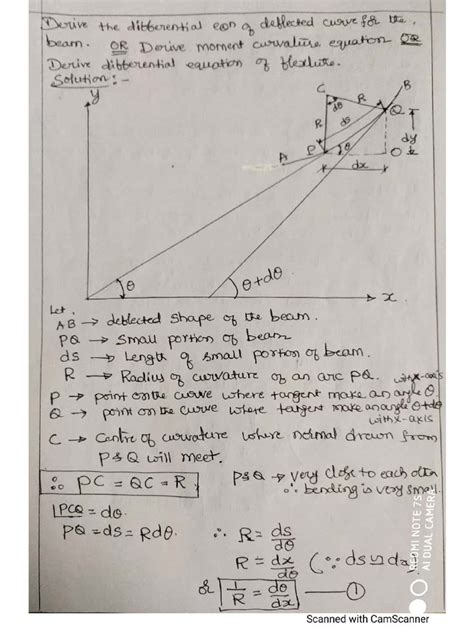 Derive the differential eqn of deflected curve for the
beam. OR Derive moment curvature equation OR
Derive differential equation of flexture.
Solution :-
y
C
dθ
R
B
R
ds
Q
P
θ
dy
A
O
dx
θ
θ+dθ
x
Let,
AB → deflected shape of the beam.
PQ → Small portion of beam
ds → Length of small portion of beam.
R → Radius of curvature of an arc PQ.
P → point on the curve where tangent make an angle θ with x-axis
Q → point on the curve where tangent make an angle θ+dθ
with x-axis
C → Centre of curvature where normal drawn from
P & Q will meet.
∴ PC = QC = R.
P & Q → very close to each other
∴ bending is very small.
∠PCQ = dθ
PQ = ds = Rdθ.
∴ R = ds/dθ
R = dx/dθ (∵ ds ≃ dx)
or 1/R = dθ/dx — ①
REDMI NOTE 7S
AI DUAL CAMERA
Scanned with CamScanner